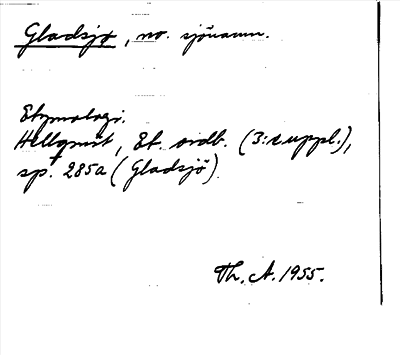 Gladsjø, no. sjönamn.
Etymologi.
Hellquist, Et. ordb. (3:e uppl.),
sp. 285a (Gladsjö)
Th. A. 1955.